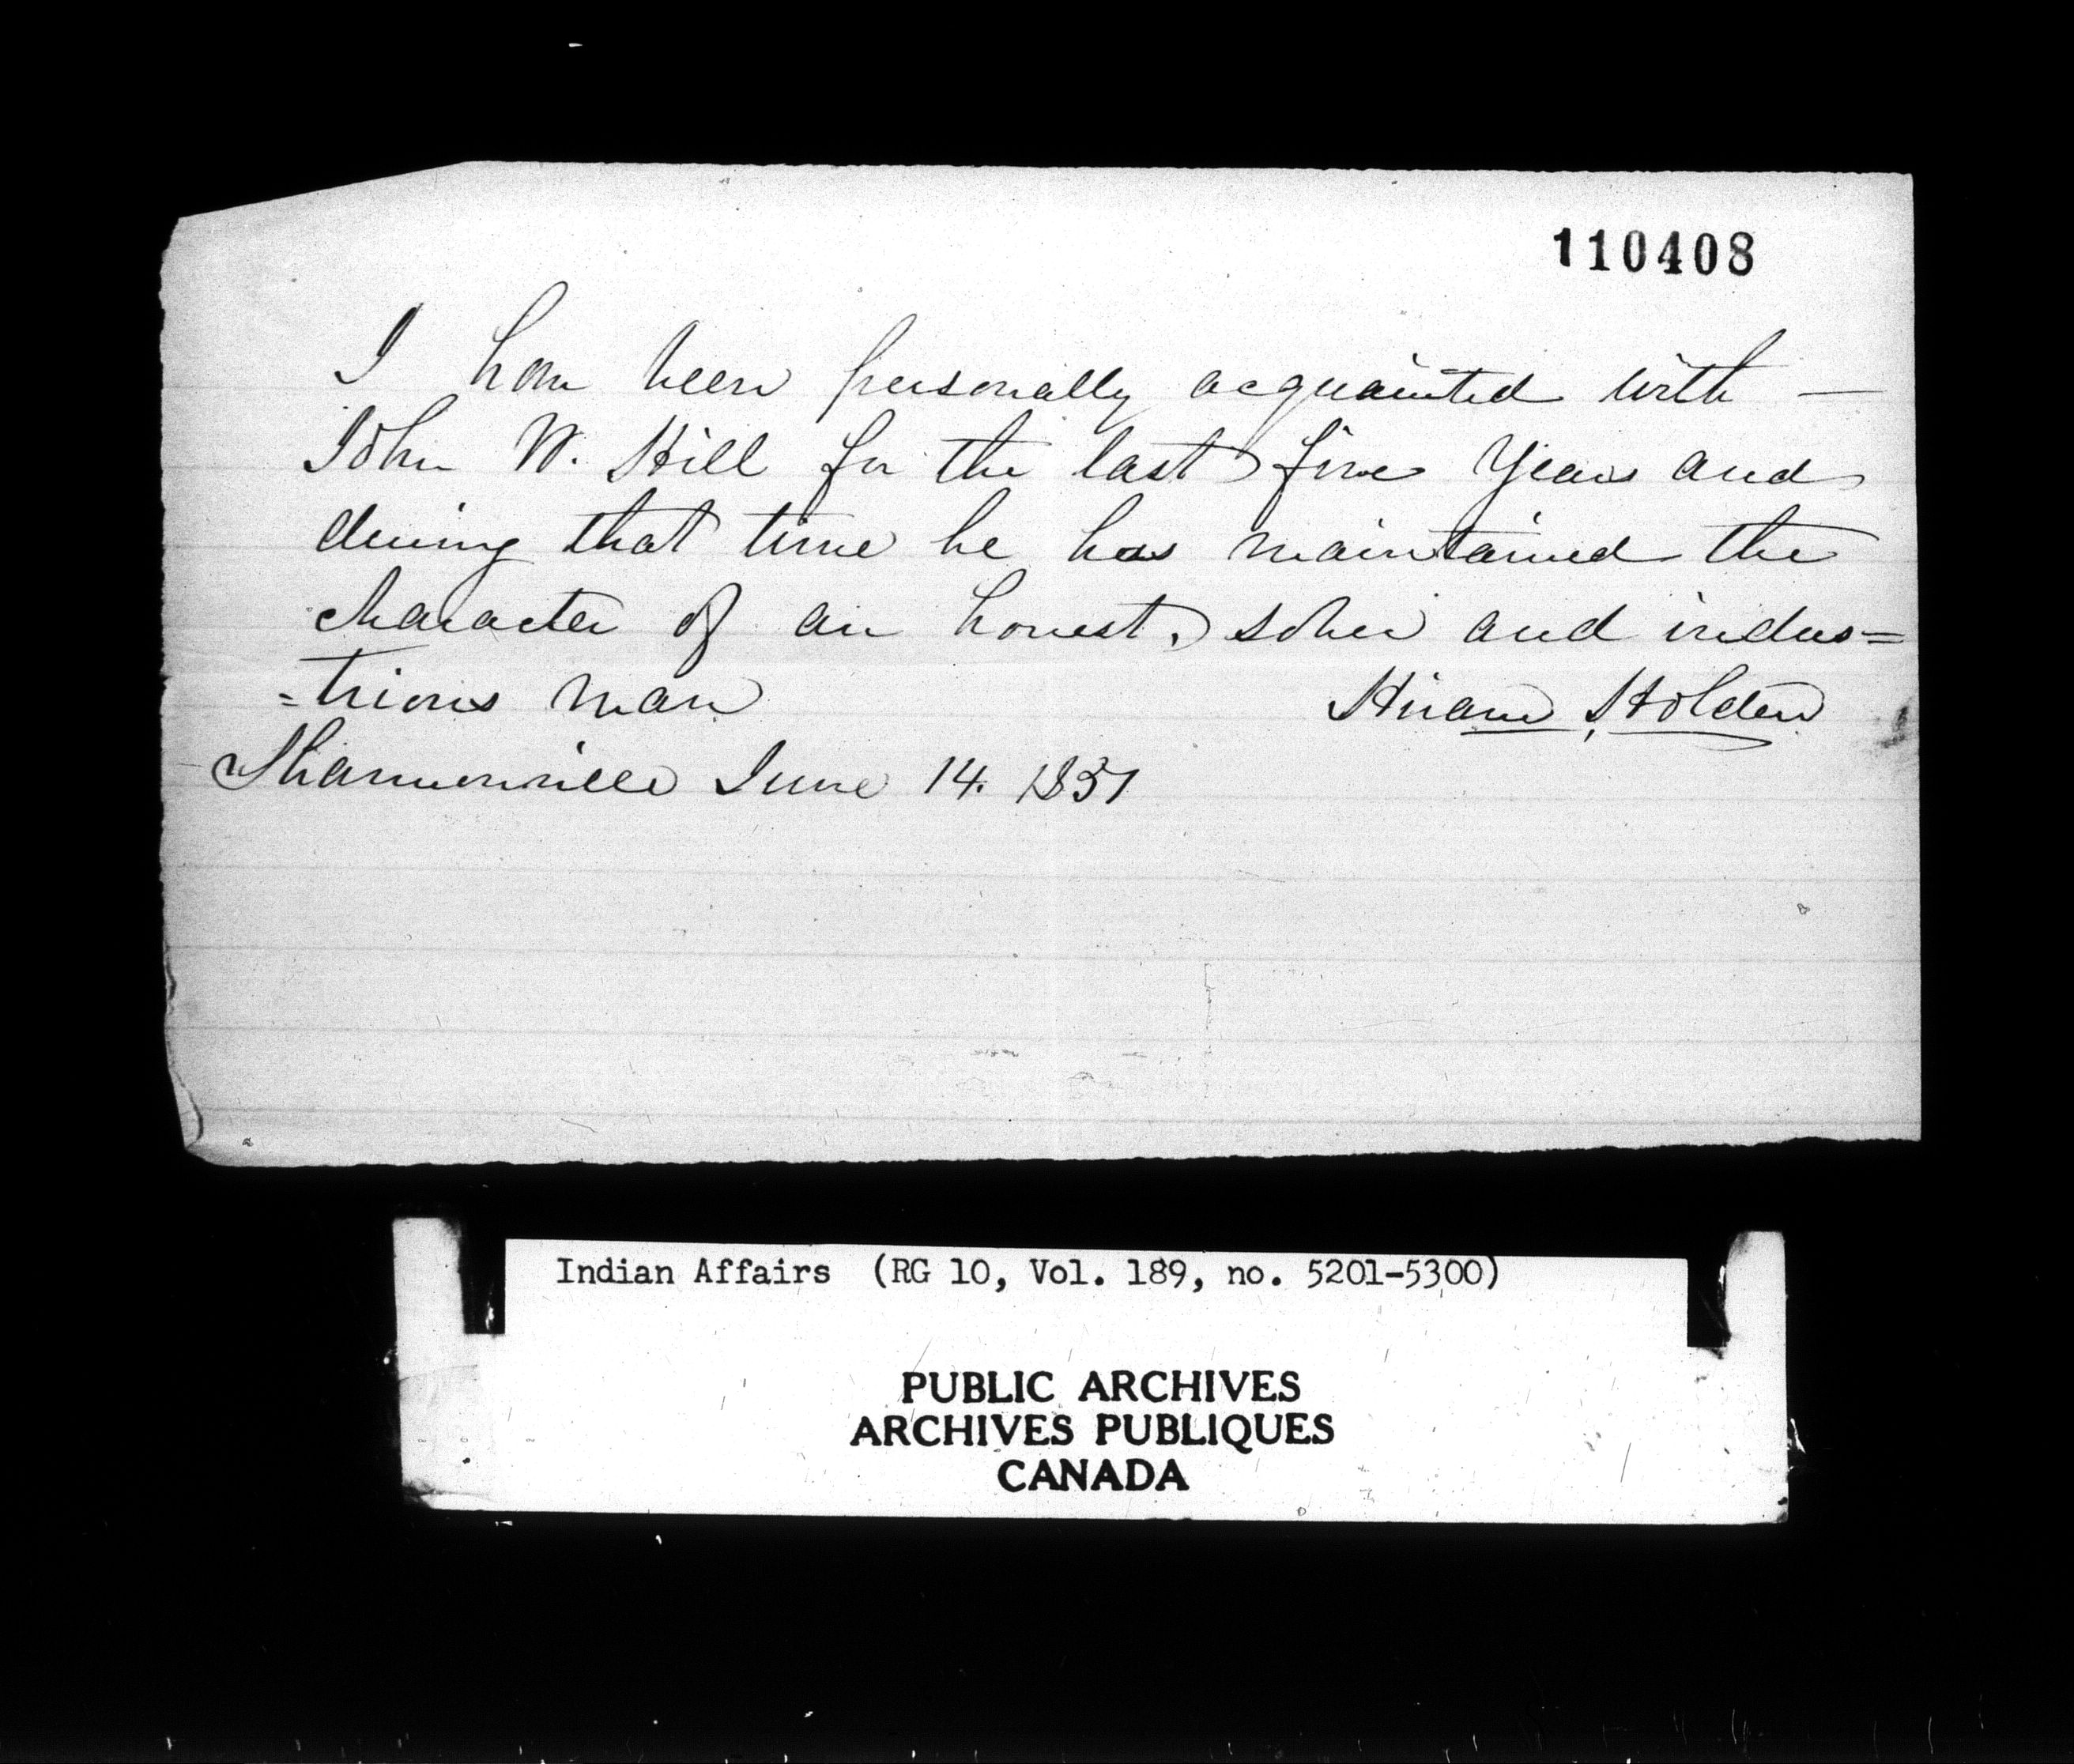 110408
I have been personally acquainted with —
John W. Hill for the last five Years and
during that time he has maintained the
character of an honest, sober and indus=
=trious man
Hiram Holden
Shannonville June 14. 1851
Indian Affairs (RG 10, Vol. 189, no. 5201-5300)
PUBLIC ARCHIVES
ARCHIVES PUBLIQUES
CANADA